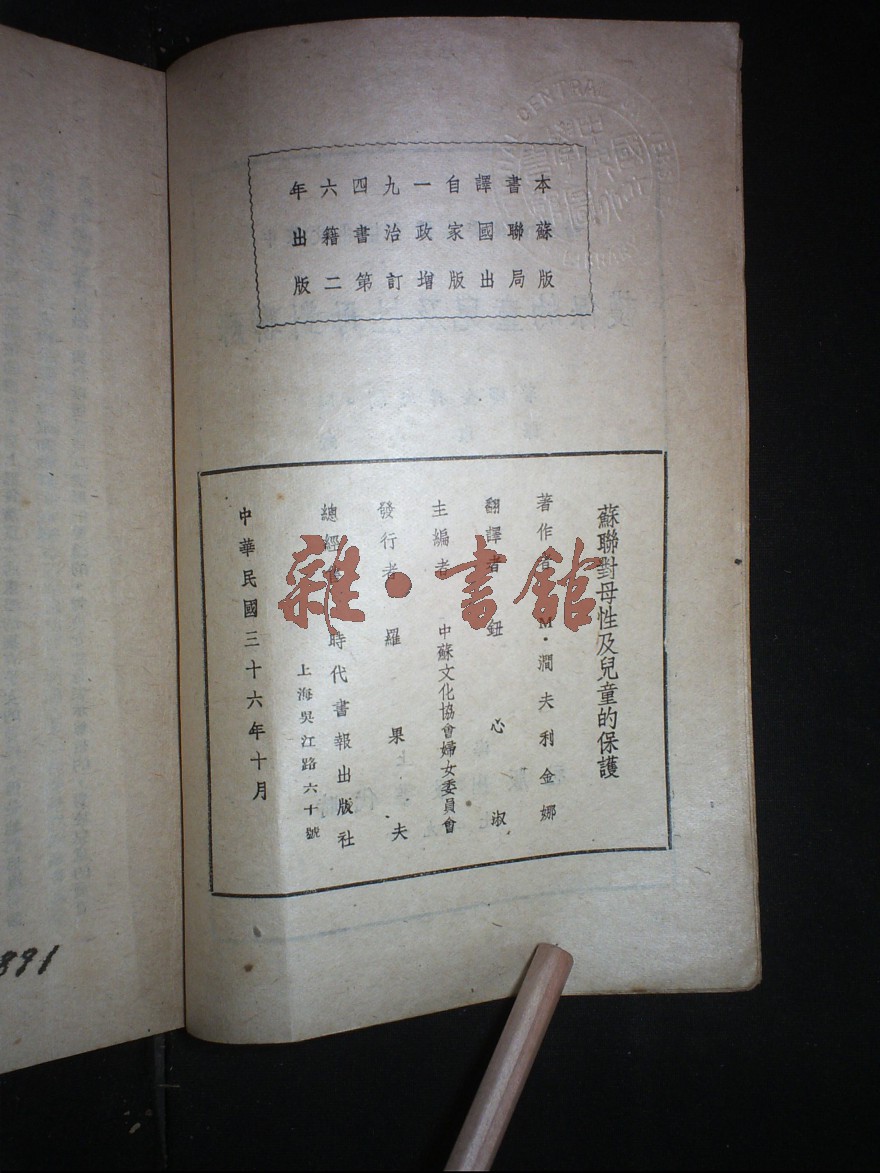 本書譯自一九四六年
蘇聯國家政治書籍出
版局出版增訂第二版
蘇聯對母性及兒童的保護
著作者 M·澗夫利金娜
翻譯者 鈕心淑
主編者 中蘇文化協會婦女委員會
發行者 羅果夫
總經 時代書報出版社
上海吳江路六十號
中華民國三十六年十月
雜·書館
CENTRAL
891